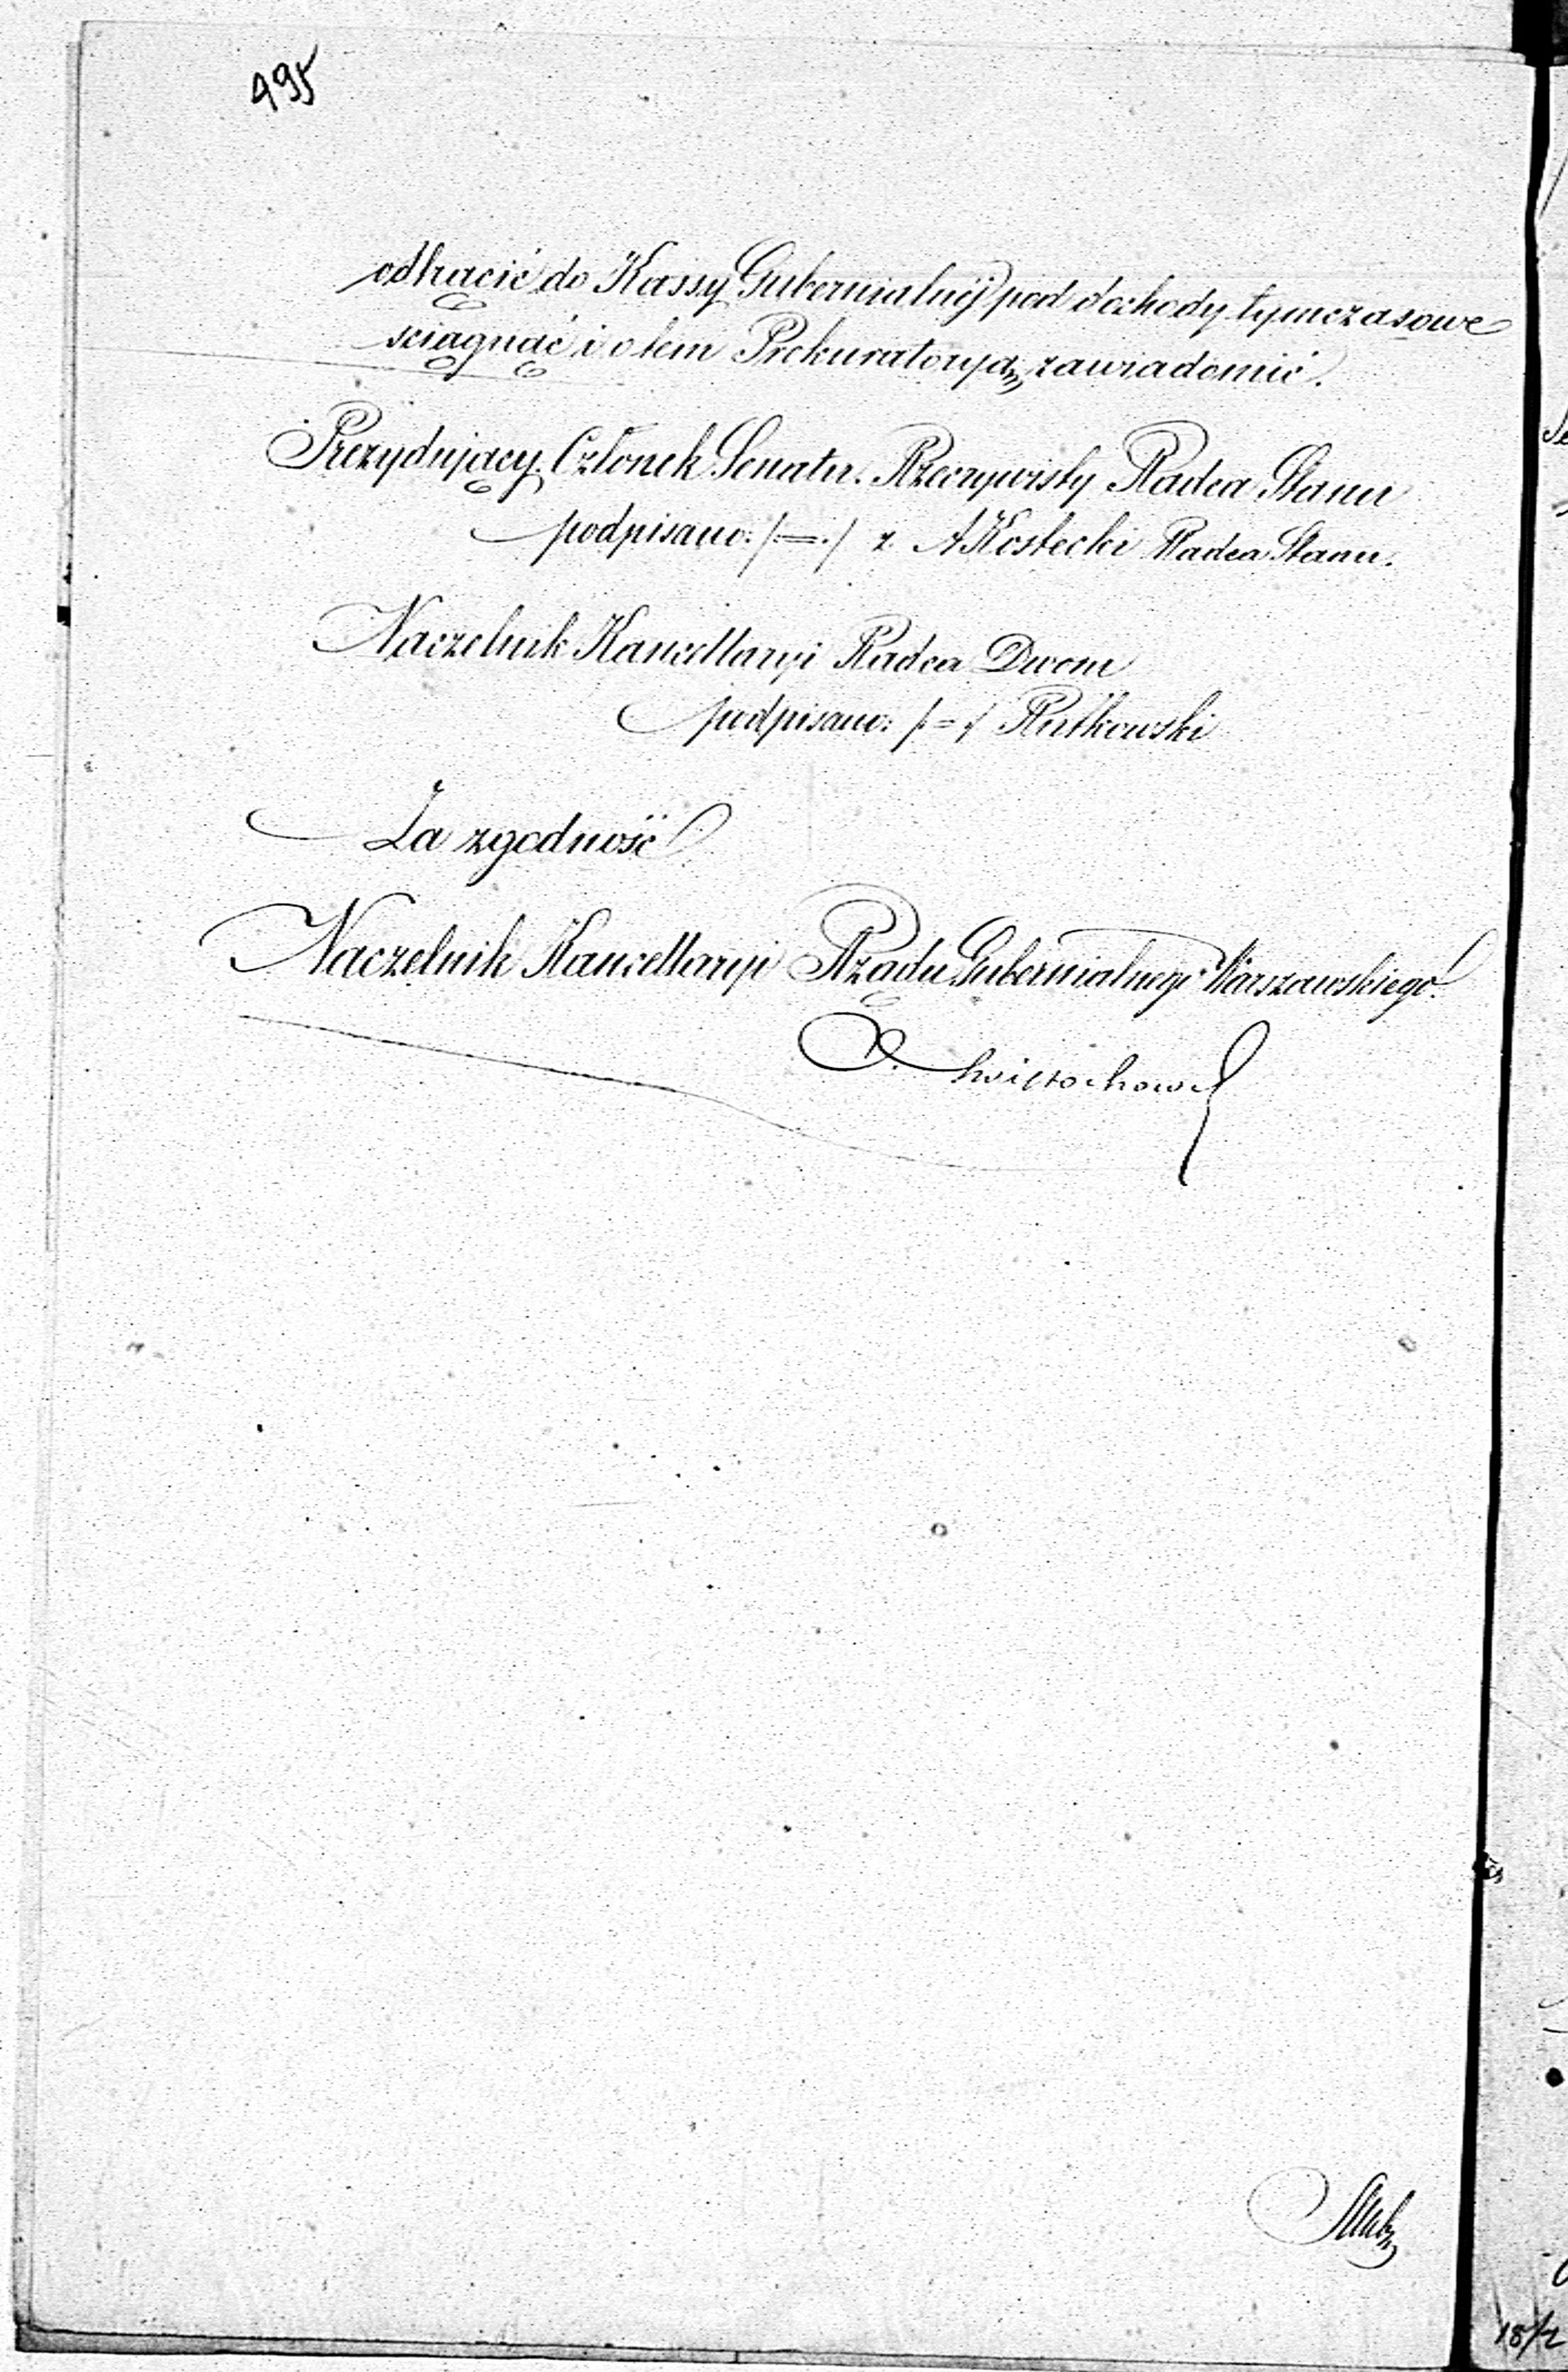 495
odtrącić do Kassy Gubernialnéj pod dochody tymczasowe
sciągnąć i o tem Prokuratoryą zawiadomić.
Prezydujący, Członek Senatu. Rzeczywisty Radca Stanu
podpisano: /:=:/ z. A Kostecki Radca Stanu.
Naczelnik Kancellaryi Radca Dworu
podpisano: /:=:/ Rutkowski
Za zgodność
Naczelnik Kancellaryi Rządu Gubernialnego Warszawskiego
18/2